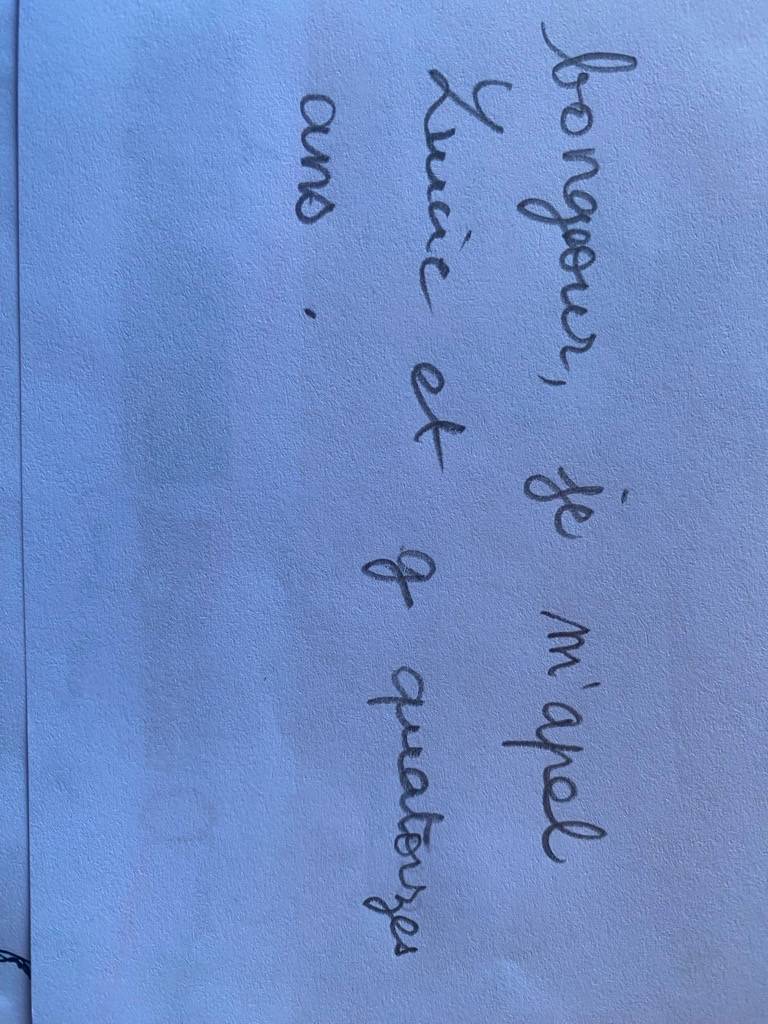 bongour, je m'apel
Lucie et g quatorzes
ans.